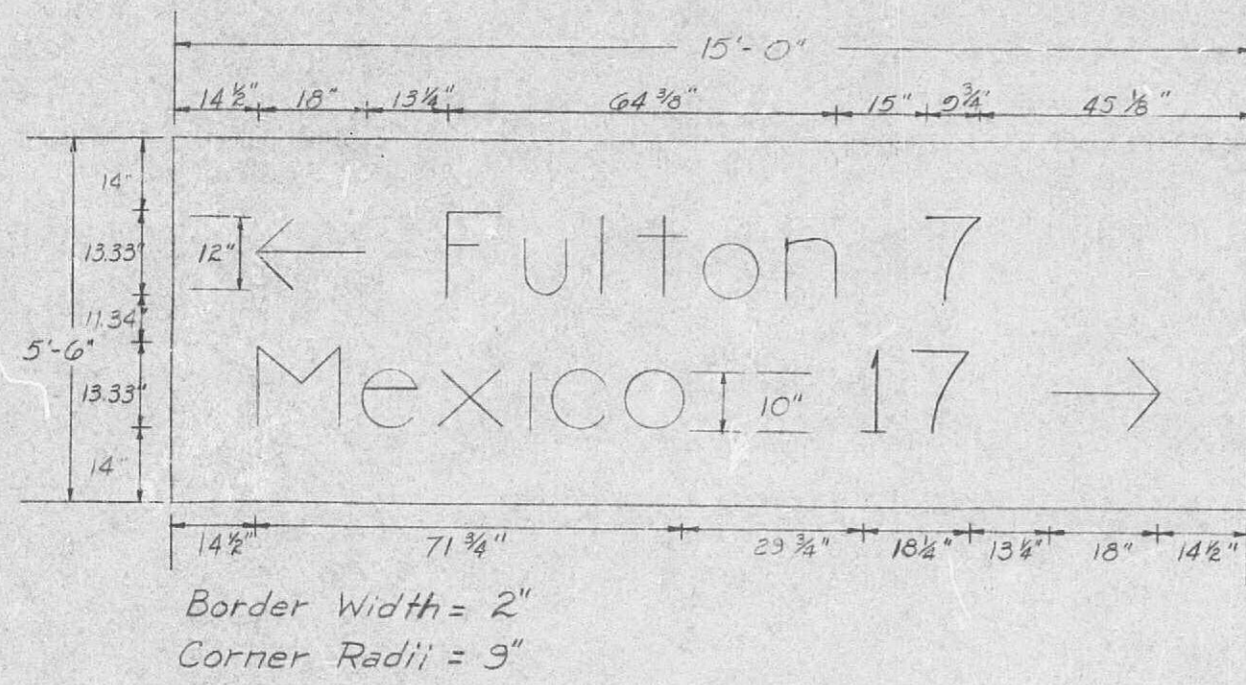 15'-0"
14 1/2" 18" 13 1/4" 64 3/8" 15" 9 3/4" 45 1/8"
14"
13.33" 12" ← Fulton 7
11.34"
5'-6"
13.33" Mexico 10" 17 →
14"
14 1/2" 71 3/4" 29 3/4" 18 1/4" 13 1/4" 18" 14 1/2"
Border Width = 2"
Corner Radii = 9"